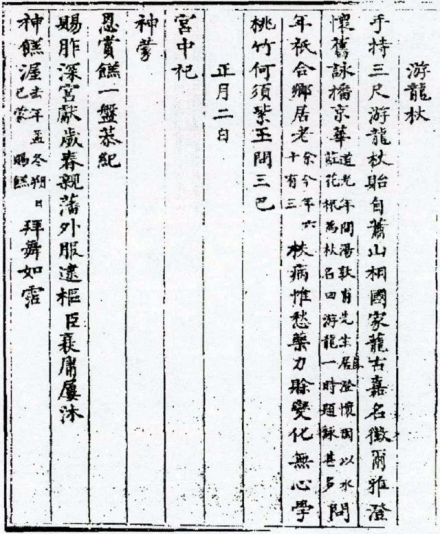 游龍杖
手持三尺游龍杖貽自蕭山相國家龍古嘉名徵爾雅澄
懷舊詠播京華道光年間湯敦甫先生居澄懷園以水葒花根為杖名曰游龍一時題詠甚多問
年祇合鄉居老余今年六十有三扶病惟愁藥力賒變化無心學
桃竹何須紫玉問三巴
正月二日
宮中祀
神蒙
恩賞餻一盤恭紀
賜胙深宮獻歲春親藩外服逮樞臣衰庸屢沐
神餻渥去年孟冬朔日已蒙賜餻拜舞如霑